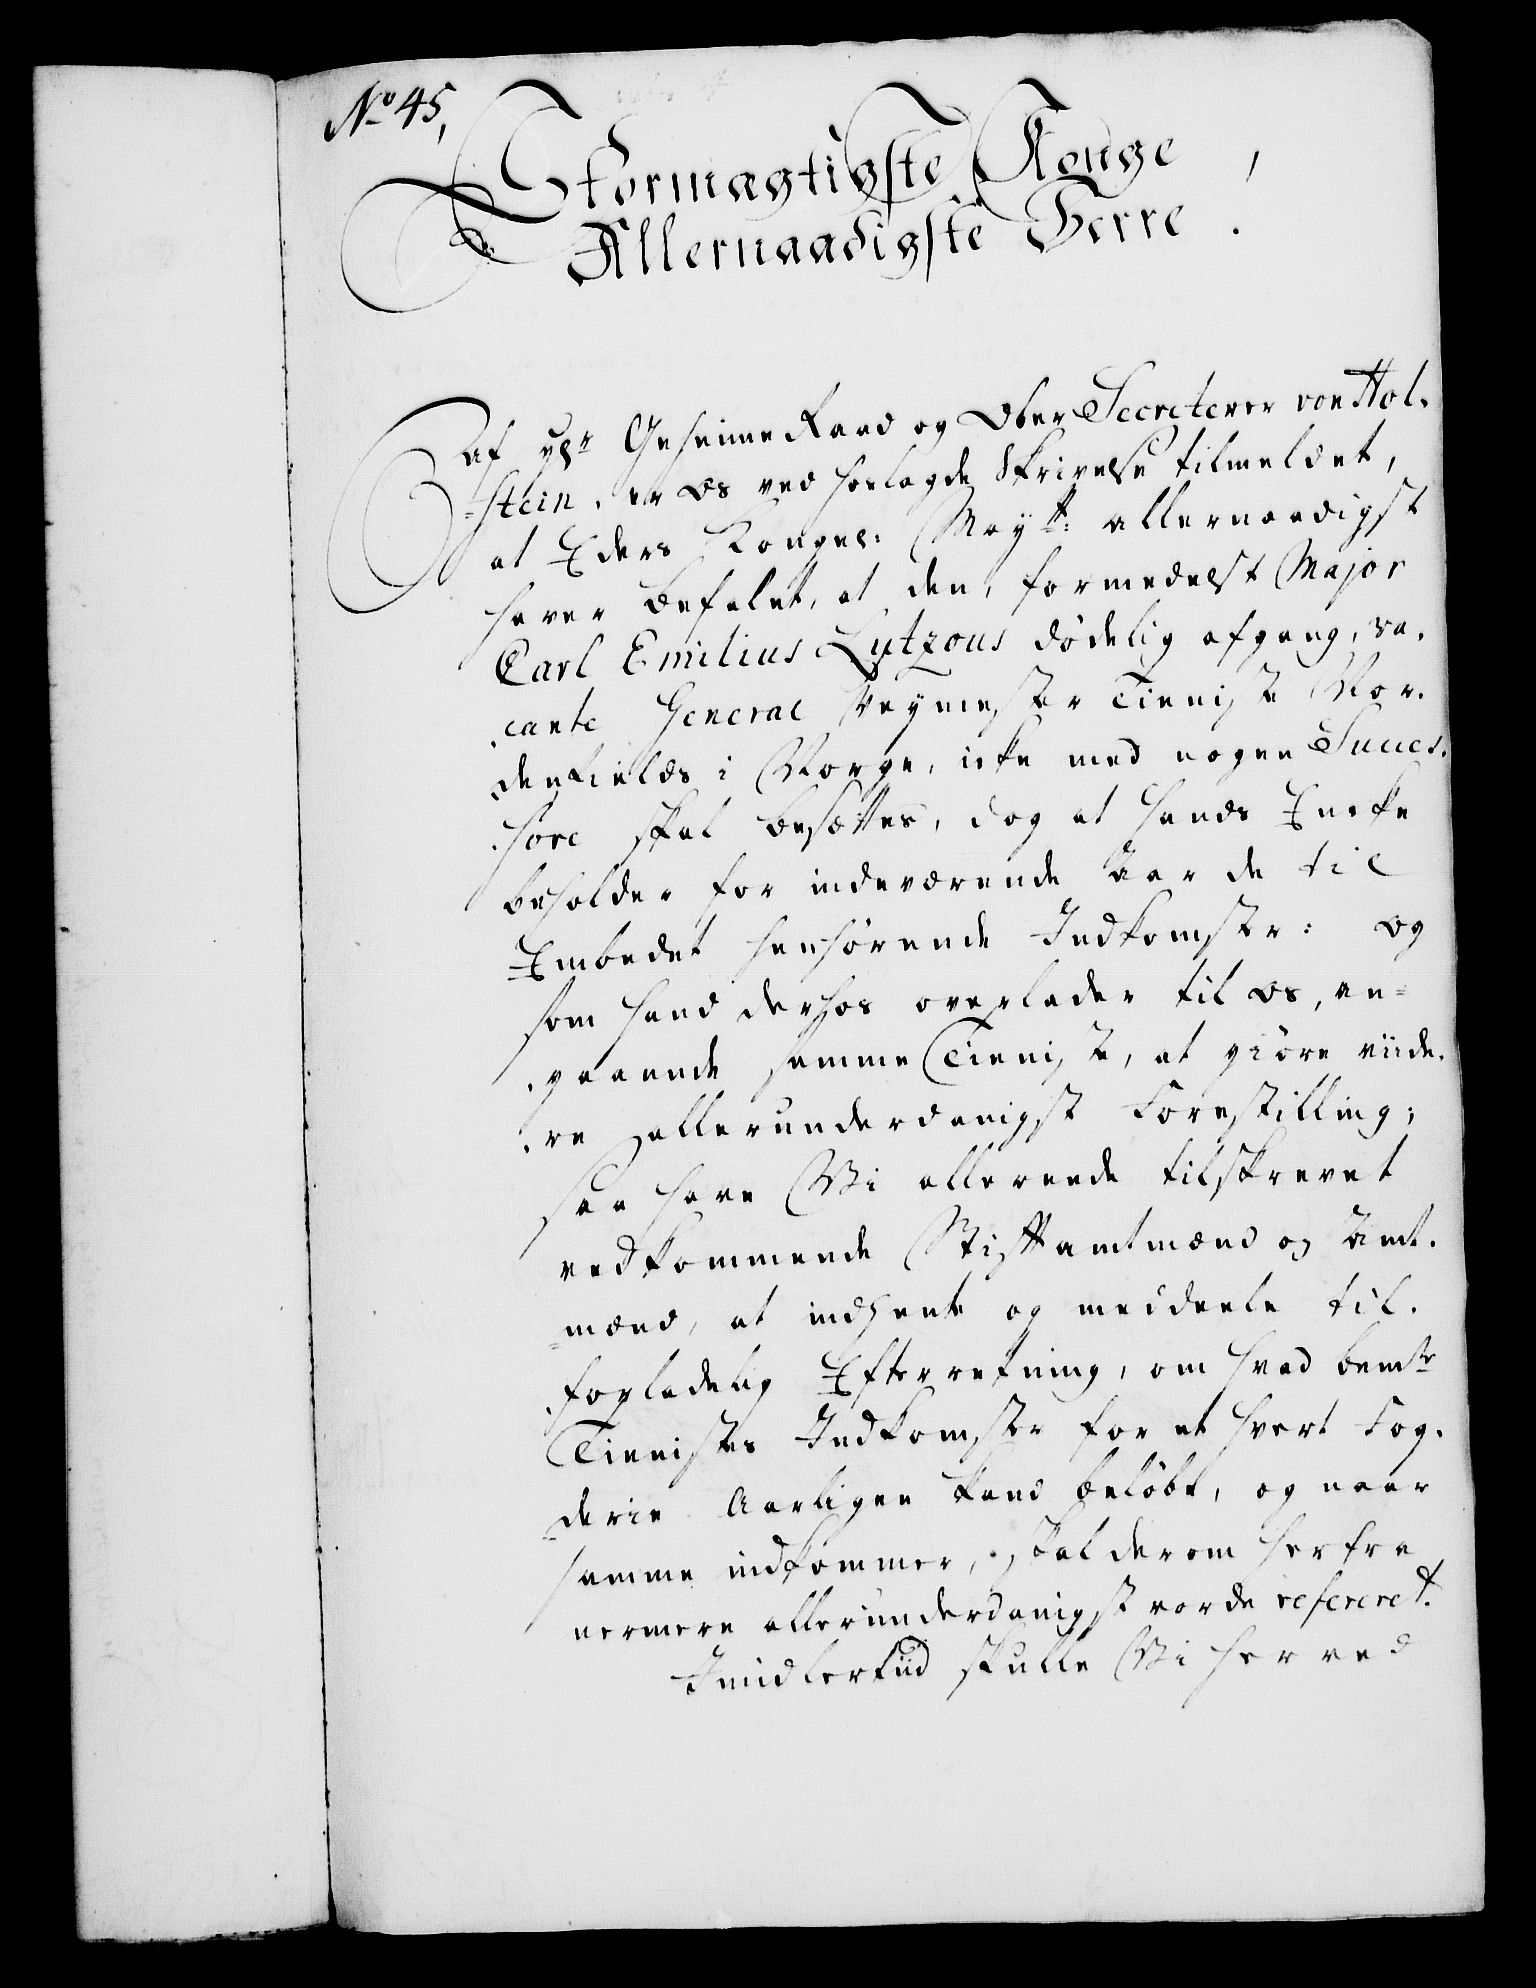 No 45,
Stormægtigste Konge,
Allernaadigste Herre.
Af Hr Geheime Raad og Ober Secreterer von Hol-
stein, er os ved hoslagde Skrivelse tilmeldet,
at Eders Kongel: Mayt: allernaadigst
haver befalet, at den, formedelst Major
Carl Emilius Lutzous dødelig afgang, va-
cante General Veymester Tieniste Nor-
denfields i Norge, icke med nogen Succes-
sore skal besættes, dog at hands Encke
beholder for indeværende Aar de til
Embedet henhørende Indkomster: og
som hand derhos overlader til os, an-
gaaende samme Tieniste, at giøre viide-
re allerunderdanigst Forestilling;
saa have Vi allereede tilskrevet
vedkommende Stiftamtmænd og Amt-
mænd, at indhente og meddeele til-
forladelig Efterretning, om hvad bemte
Tienistes Indkomster for et hvert Fog-
derie Aarligen kand beløbe, og naar
samme indkommer, skal derom herfra
nermere allerunderdanigst vorde refereret.
Imidlertiid skulle Vi herved